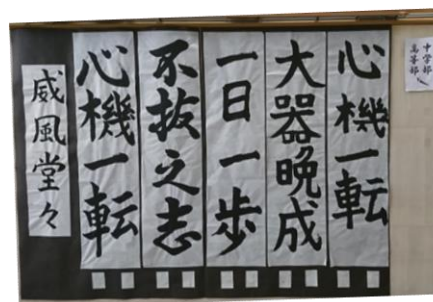 中学部
高等部
心機一転
大器晩成
一日一歩
不抜之志
心機一転
威風堂々